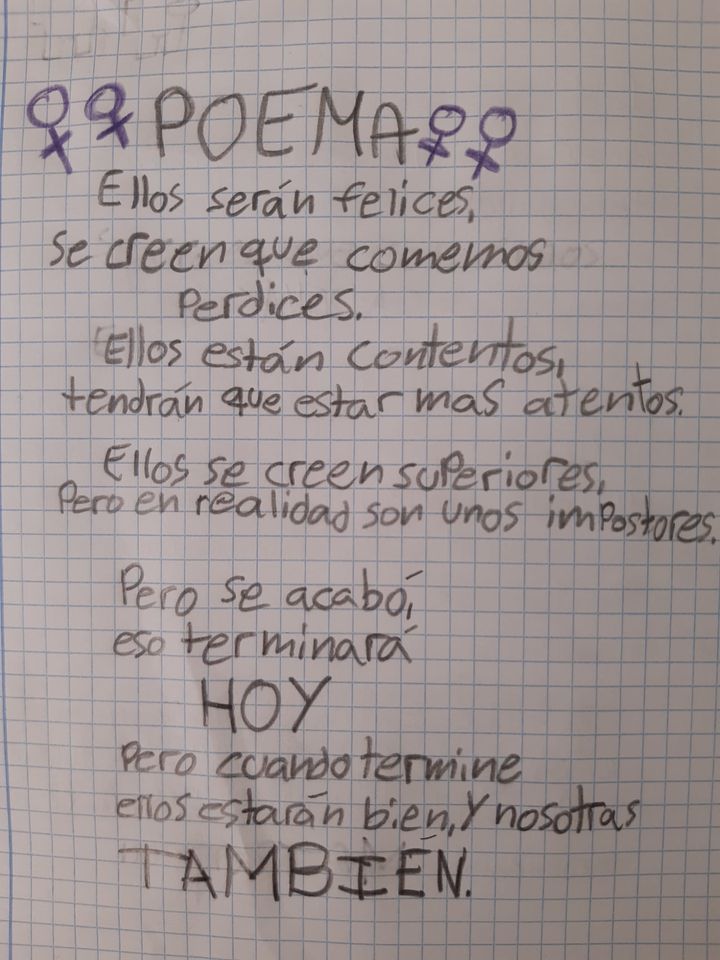 ♀♀POEMA♀♀
Ellos serán felices,
se creen que comemos
perdices.
Ellos están contentos,
tendrán que estar mas atentos.
Ellos se creen superiores,
Pero en realidad son unos impostores.
Pero se acabó,
eso terminará
HOY
Pero cuando termine
ellos estarán bien, y nosotras
TAMBIÉN.